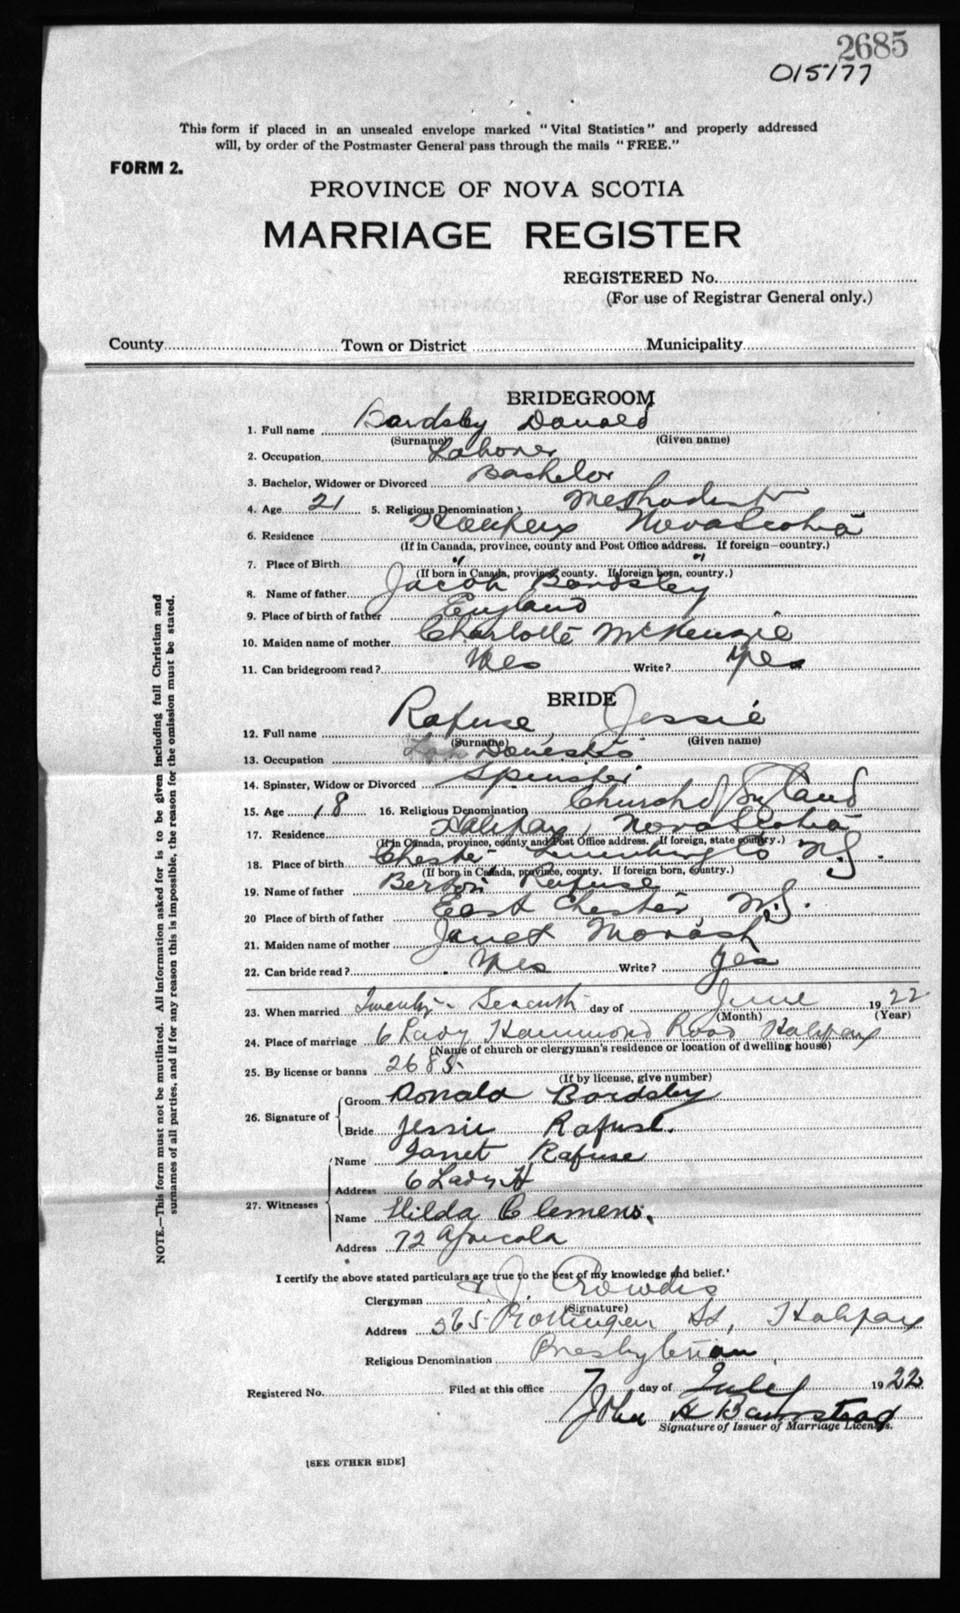 2685
015177
This form if placed in an unsealed envelope marked "Vital Statistics" and properly addressed
will, by order of the Postmaster General pass through the mails "FREE."
FORM 2.
PROVINCE OF NOVA SCOTIA
MARRIAGE REGISTER
REGISTERED No.
(For use of Registrar General only.)
County Town or District Municipality
BRIDEGROOM
1. Full name Bardsley Donald
(Surname) (Given name)
2. Occupation Laborer
3. Bachelor, Widower or Divorced Bachelor
4. Age 21 5. Religious Denomination Methodist
6. Residence Halifax Nova Scotia
(If in Canada, province, county and Post Office address. If foreign—country.)
7. Place of Birth " "
(If born in Canada, province, county. If foreign born, country.)
8. Name of father Jacob Bardsley
9. Place of birth of father England
10. Maiden name of mother Charlotte McKenzie
11. Can bridegroom read? Yes Write? Yes
BRIDE
12. Full name Rafuse Jessie
(Surname) (Given name)
13. Occupation Domestic
14. Spinster, Widow or Divorced Spinster
15. Age 18 16. Religious Denomination Church of England
17. Residence Halifax, Nova Scotia
(If in Canada, province, county and Post Office address. If foreign, state country.)
18. Place of birth Chester Lunenburg Co N.S.
(If born in Canada, province, county. If foreign born, country.)
19. Name of father Berton Rafuse
20 Place of birth of father East Chester, N.S.
21. Maiden name of mother Janet Morash
22. Can bride read? Yes Write? Yes
23. When married Twenty-Seventh day of June 1922
(Month) (Year)
24. Place of marriage 6 Lady Hammond Road Halifax
(Name of church or clergyman's residence or location of dwelling house)
25. By license or banns 2685
(If by license, give number)
26. Signature of Groom Donald Bardsley
Bride Jessie Rafuse.
27. Witnesses Name Janet Rafuse
Address 6 Lady H
Name Hilda Clemens.
Address 72 Agricola
I certify the above stated particulars are true to the best of my knowledge and belief.
Clergyman J. Crowdis
(Signature)
Address 565 Gottingen St, Halifax
Religious Denomination Presbyterian
Registered No. Filed at this office 7 day of July 1922
John H Barnstead
Signature of Issuer of Marriage Licenses.
[SEE OTHER SIDE]
NOTE.—This form must not be mutilated. All information asked for is to be given including full Christian and
surnames of all parties, and if for any reason this is impossible, the reason for the omission must be stated.